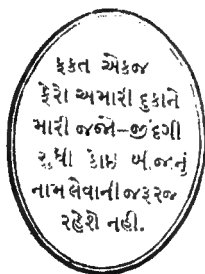 ફકત એકજ
ફેરો અમારી દુકાને
મારી જજો–જીંદગી
સુધી કોઇ બીજાનું
નામ લેવાની જરૂરજ
રહેશે નહી.